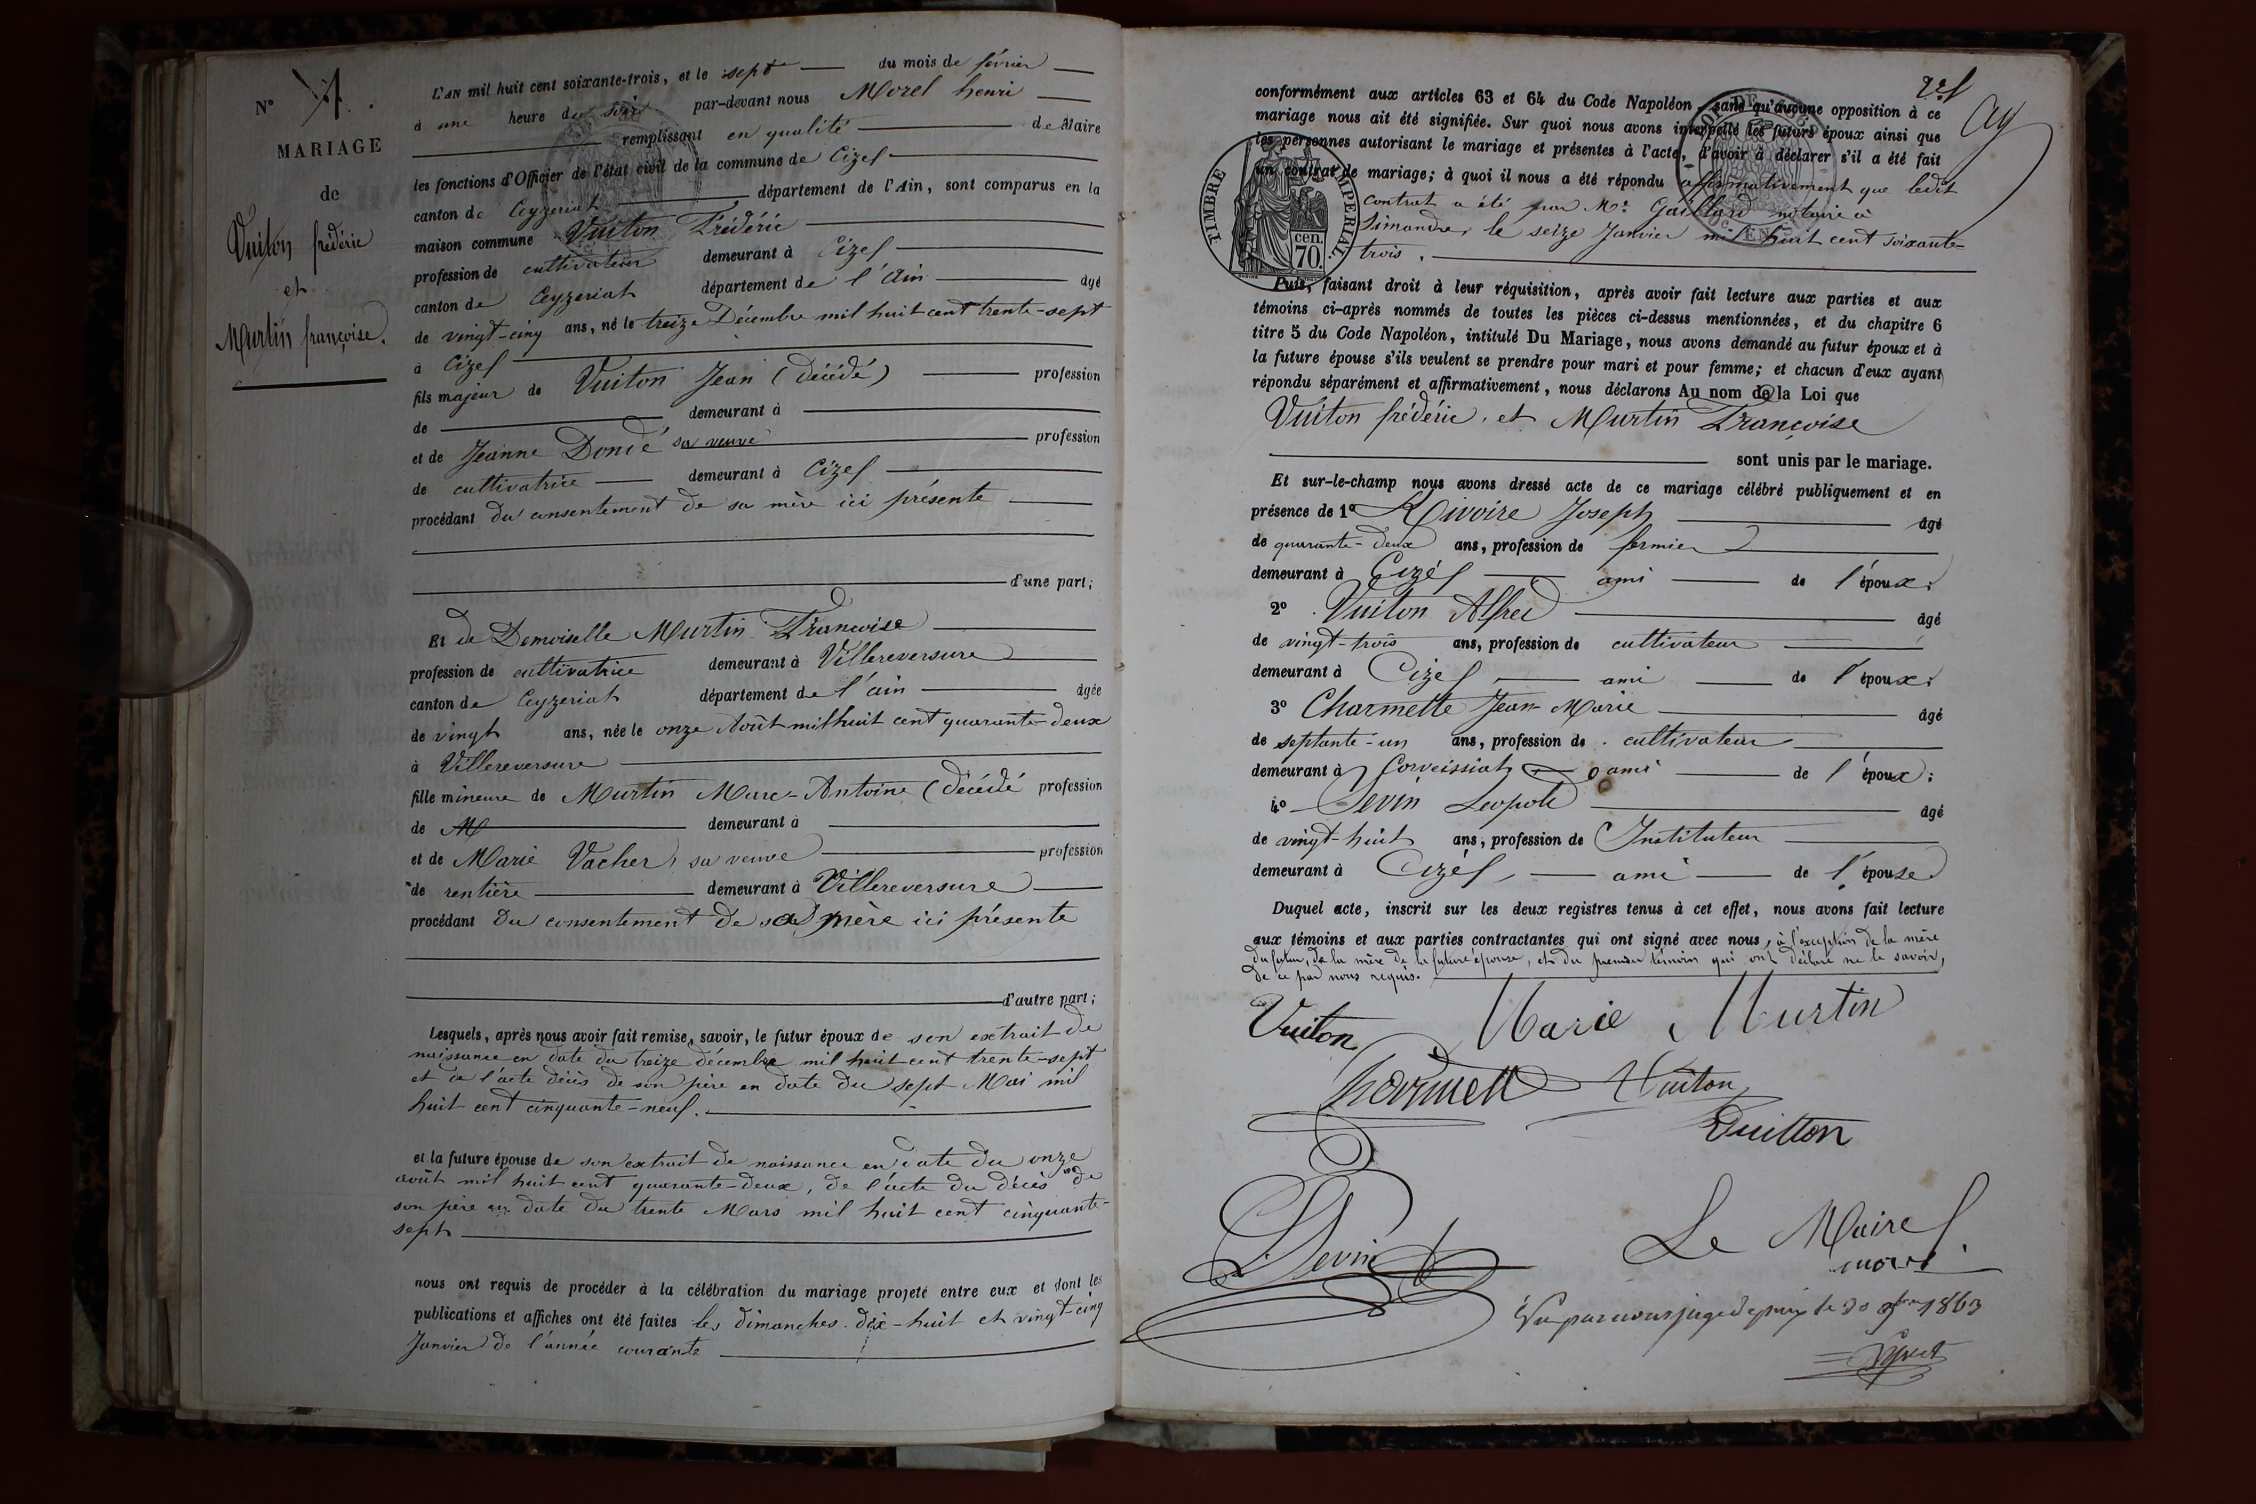 N° 4.
MARIAGE
de
Vuiton frédéric
et
Murtin françoise.
L'AN mil huit cent soixante-trois, et le sept du mois de février
à une heure du soir par-devant nous Morel henri
remplissant en qualité de Maire
les fonctions d'Officier de l'état civil de la commune de Cizef
canton de Ceyzeriat département de l'Ain, sont comparus en la
maison commune Vuiton Frédéric
profession de cultivateur demeurant à Cizef
canton de Ceyzeriat département de l'Ain âgé
de vingt-cinq ans, né le treize Décembre mil huit cent trente-sept
à Cizef
fils majeur de Vuiton Jean (décédé) profession
de demeurant à
et de Jeanne Dondé sa veuve profession
de cultivatrice demeurant à Cizef
procédant du consentement de sa mère ici présente
d'une part;
Et de Demoiselle Murtin Françoise
profession de cultivatrice demeurant à Villereversure
canton de Ceyzeriat département de l'ain âgée
de vingt ans, née le onze Août mil huit cent quarante-deux
à Villereversure
fille mineure de Murtin Marc-Antoine (décédé profession
de M demeurant à
et de Marie Vacher, sa veuve profession
de rentière demeurant à Villereversure
procédant Du consentement de sa mère ici présente
d'autre part;
Lesquels, après nous avoir fait remise, savoir, le futur époux de son extrait de
naissance en date du treize décembre mil huit cent trente-sept
et de l'acte décès de son père en date du sept Mai mil
huit cent cinquante-neuf.
et la future épouse de son extrait de naissance en date du onze
août mil huit cent quarante-deux, de l'acte du décès de
son père en date du trente Mars mil huit cent cinquante-
sept
nous ont requis de procéder à la célébration du mariage projeté entre eux et dont les
publications et affiches ont été faites les dimanches dix-huit et vingt-cinq
Janvier de l'année courante
conformément aux articles 63 et 64 du Code Napoléon, sans qu'aucune opposition à ce
mariage nous ait été signifiée. Sur quoi nous avons interpellé les futurs époux ainsi que
les personnes autorisant le mariage et présentes à l'acte, d'avoir à déclarer s'il a été fait
un contrat de mariage; à quoi il nous a été répondu affirmativement que ledit
contrat a été par Mr. Gaillard notaire à
Simandre, le seize Janvier mil huit cent soixante-
trois.
TIMBRE IMPERIAL.
70 cen.
Puis, faisant droit à leur réquisition, après avoir fait lecture aux parties et aux
témoins ci-après nommés de toutes les pièces ci-dessus mentionnées, et du chapitre 6
titre 5 du Code Napoléon, intitulé Du Mariage, nous avons demandé au futur époux et à
la future épouse s'ils veulent se prendre pour mari et pour femme; et chacun d'eux ayant
répondu séparément et affirmativement, nous déclarons Au nom de la Loi que
Vuiton frédéric, et Murtin Françoise
sont unis par le mariage.
Et sur-le-champ nous avons dressé acte de ce mariage célébré publiquement et en
présence de 1° Rivoire Joseph âgé
de quarante-deux ans, profession de fermier
demeurant à Cizéf ami de l'époux;
2° Vuiton Alfred âgé
de vingt-trois ans, profession de cultivateur
demeurant à Cizef ami de l'époux;
3° Charmette Jean-Marie âgé
de septante-un ans, profession de cultivateur
demeurant à Corveissiat ami de l'époux;
4° Sevin Leopold âgé
de vingt-huit ans, profession de Instituteur
demeurant à Cizéf, ami de l'épouse
Duquel acte, inscrit sur les deux registres tenus à cet effet, nous avons fait lecture
aux témoins et aux parties contractantes qui ont signé avec nous, à l'exception de la mère
du futur, de la mère de la future épouse, et du premier témoin qui ont déclaré ne le savoir,
de ce par nous requis.
Vuiton Marie Murtin
Charmett Vuiton
Vuitton
Sevin
Le Maire
morel
Vu par nous juge de paix le 30 1863